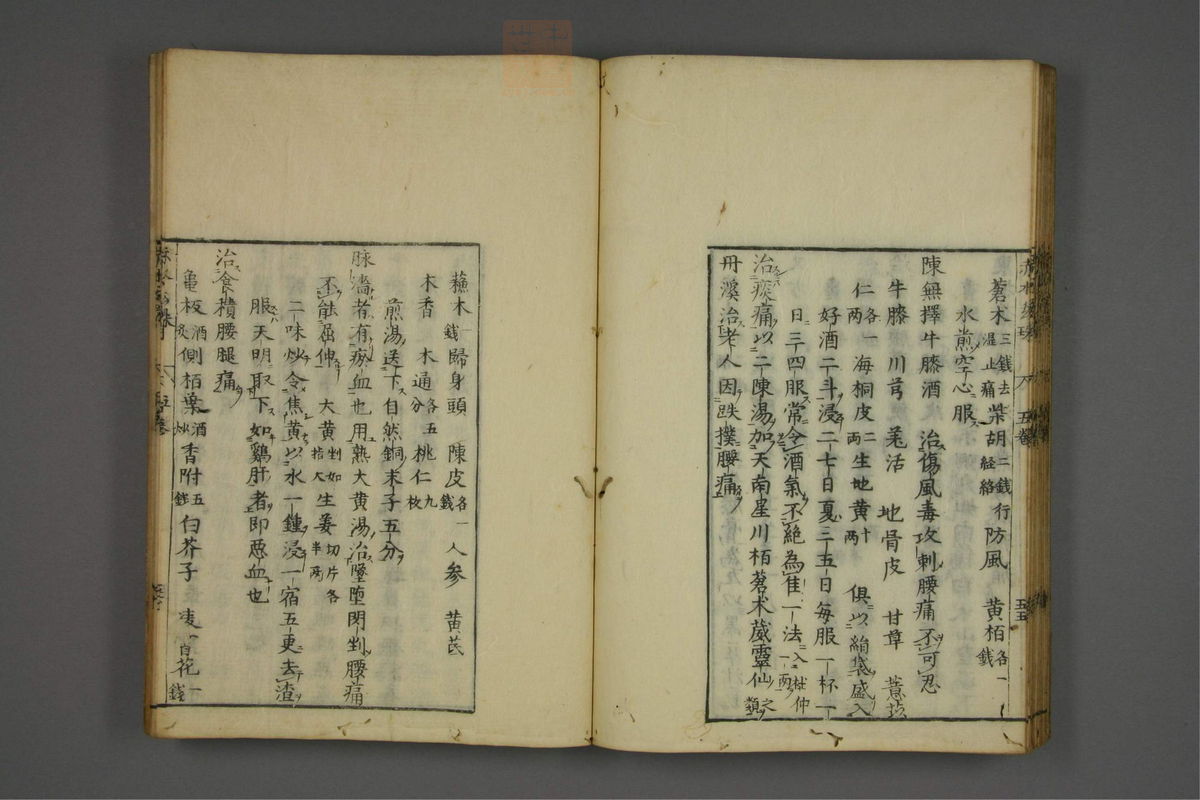 蒼术三錢去湿止痛柴胡二錢行経絡防風 黄栢各一錢
水煎空心服
陳無擇牛膝酒 治傷風毒攻刺腰痛不可忍
牛膝 川芎 羗活 地骨皮 甘草 薏苡
仁各一両海桐皮二両生地黄十両 俱以絹袋盛入
好酒二斗浸二七日夏三五日每服一杯一
日三四服常令酒氣不絶為隹一法入杜仲一両
治痰痛以二陳湯加天南星川栢蒼术葳靈仙之類
丹溪治老人因跌撲腰痛
蘓木一錢歸身頭 陳皮各一錢 人参 黄芪
木香 木通各五分桃仁九枚
煎湯送下自然銅末子五分
脉濇者有瘀血也用熟大黄湯治墜堕閃剉腰痛
不能屈伸 大黄剉如指大生姜切片各半両
二味炒令焦黄以水一鍾浸一宿五更去渣
服天明取下如鷄肝者即悪血也
治食積腰腿痛
亀板酒炙側栢葉酒炒香附五錢白芥子 凌霄花一錢